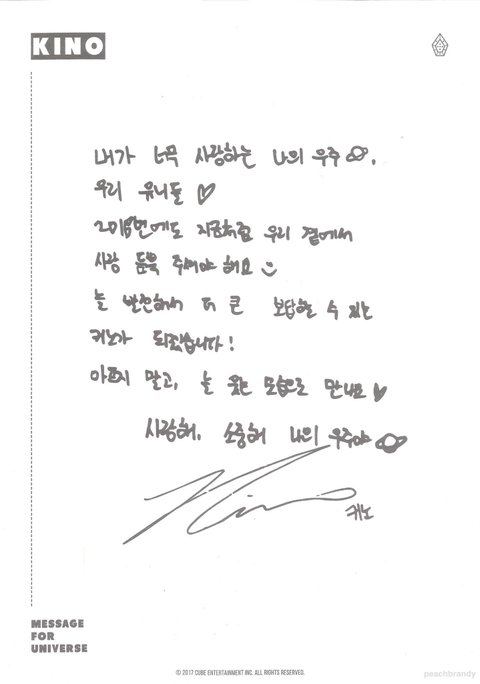 KINO
내가 너무 사랑하는 나의 우주.
우리 유니들♡
2018년에도 지금처럼 우리 곁에서
사랑 듬뿍 주셔야 해요
늘 발전해서 더 큰 보답할 수 있는
키노가 되겠습니다!
아프지 말고, 늘 웃는 모습으로 만나요♡
사랑해, 소중해 나의 우주야
Kino
키노
MESSAGE
FOR
UNIVERSE
© 2017 CUBE ENTERTAINMENT INC. ALL RIGHTS RESERVED.
peachbrandy